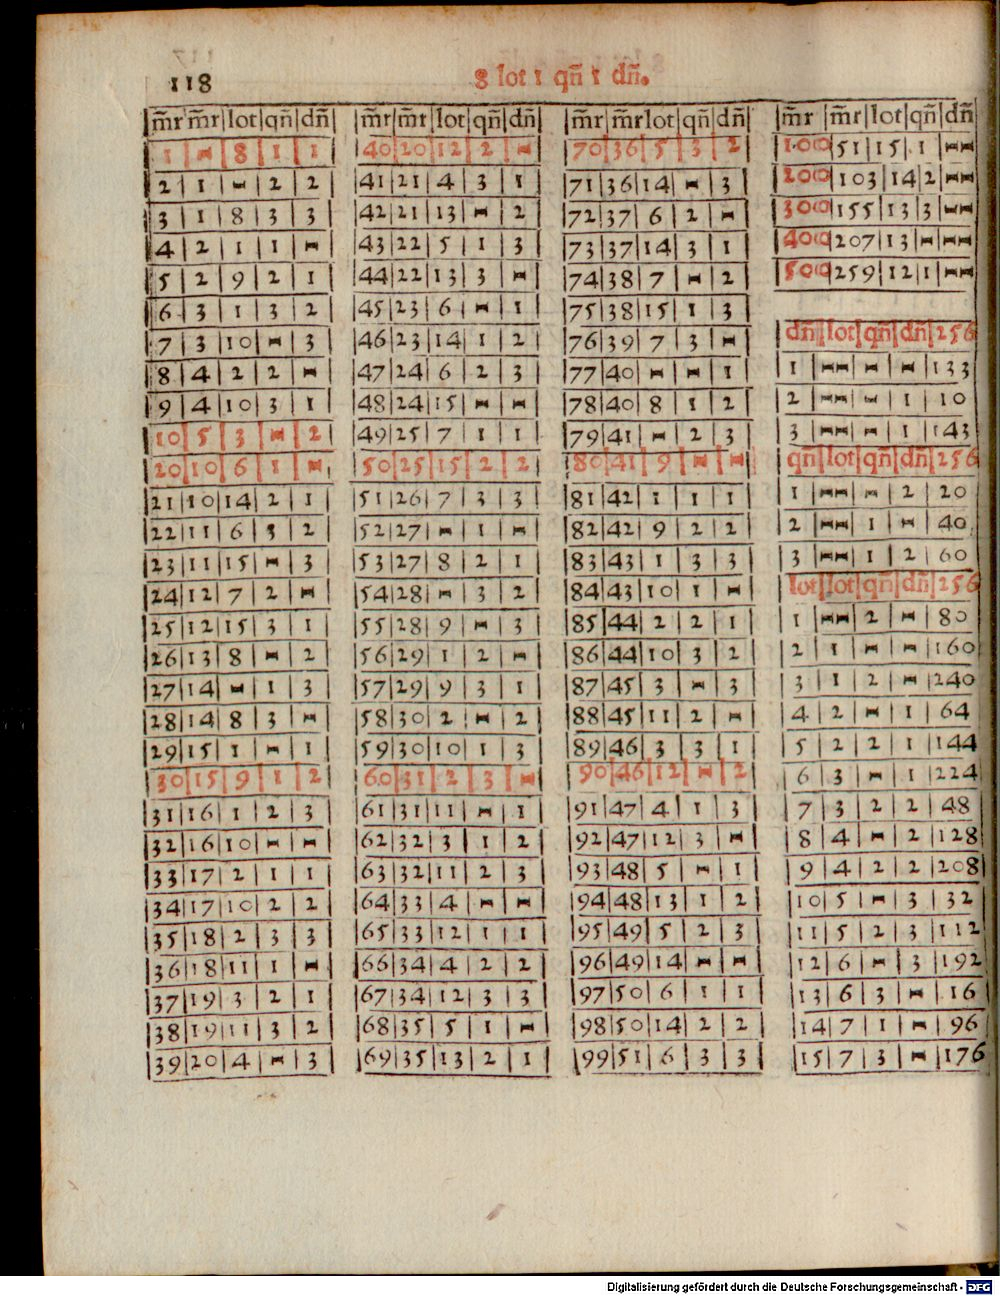 118
8 lot 1 qñ 1 dñ.
m̃r|m̃r|lot|qñ|dñ
1|-|8|1|1
2|1|-|2|2
3|1|8|3|3
4|2|1|1|-
5|2|9|2|1
6|3|1|3|2
7|3|10|-|3
8|4|2|2|-
9|4|10|3|1
10|5|3|-|2
20|10|6|1|-
21|10|14|2|1
22|11|6|3|2
23|11|15|-|3
24|12|7|2|-
25|12|15|3|1
26|13|8|-|2
27|14|-|1|3
28|14|8|3|-
29|15|1|-|1
30|15|9|1|2
31|16|1|2|3
32|16|10|-|-
33|17|2|1|1
34|17|10|2|2
35|18|2|3|3
36|18|11|1|-
37|19|3|2|1
38|19|11|3|2
39|20|4|-|3
m̃r|m̃r|lot|qñ|dñ
40|20|12|2|-
41|21|4|3|1
42|21|13|-|2
43|22|5|1|3
44|22|13|3|-
45|23|6|-|1
46|23|14|1|2
47|24|6|2|3
48|24|15|-|-
49|25|7|1|1
50|25|15|2|2
51|26|7|3|3
52|27|-|1|-
53|27|8|2|1
54|28|-|3|2
55|28|9|-|3
56|29|1|2|-
57|29|9|3|1
58|30|2|-|2
59|30|10|1|3
60|31|2|3|-
61|31|11|-|1
62|32|3|1|2
63|32|11|2|3
64|33|4|-|-
65|33|12|1|1
66|34|4|2|2
67|34|12|3|3
68|35|5|1|-
69|35|13|2|1
m̃r|m̃r|lot|qñ|dñ
70|36|5|3|2
71|36|14|-|3
72|37|6|2|-
73|37|14|3|1
74|38|7|-|2
75|38|15|1|3
76|39|7|3|-
77|40|-|-|1
78|40|8|1|2
79|41|-|2|3
80|41|9|-|-
81|42|1|1|1
82|42|9|2|2
83|43|1|3|3
84|43|10|1|-
85|44|2|2|1
86|44|10|3|2
87|45|3|-|3
88|45|11|2|-
89|46|3|3|1
90|46|12|-|2
91|47|4|1|3
92|47|12|3|-
93|48|5|-|1
94|48|13|1|2
95|49|5|2|3
96|49|14|-|-
97|50|6|1|1
98|50|14|2|2
99|51|6|3|3
m̃r|m̃r|lot|qñ|dñ
100|51|15|1|--
200|103|14|2|--
300|155|13|3|--
400|207|13|-|--
500|259|12|1|--
dñ|lot|qñ|dñ|256
1|--|-|-|133
2|--|-|1|10
3|--|-|1|143
qñ|lot|qñ|dñ|256
1|--|-|2|20
2|--|1|-|40
3|--|1|2|60
lot|lot|qñ|dñ|256
1|--|2|-|80
2|1|-|-|160
3|1|2|-|240
4|2|-|1|64
5|2|2|1|144
6|3|-|1|224
7|3|2|2|48
8|4|-|2|128
9|4|2|2|208
10|5|-|3|32
11|5|2|3|112
12|6|-|3|192
13|6|3|-|16
14|7|1|-|96
15|7|3|-|176
Digitalisierung gefördert durch die Deutsche Forschungsgemeinschaft - DFG